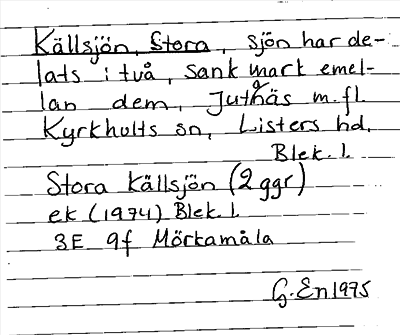 Källsjön, Stora, sjön har de-
lats i två, sank mark emel-
lan dem, Juthäs m.fl.
Kyrkhults sn, Listers hd.
Blek. l.
Stora Källsjön (2 ggr)
ek (1974) Blek. l.
3E 9f Mörkamåla
G. En 1975